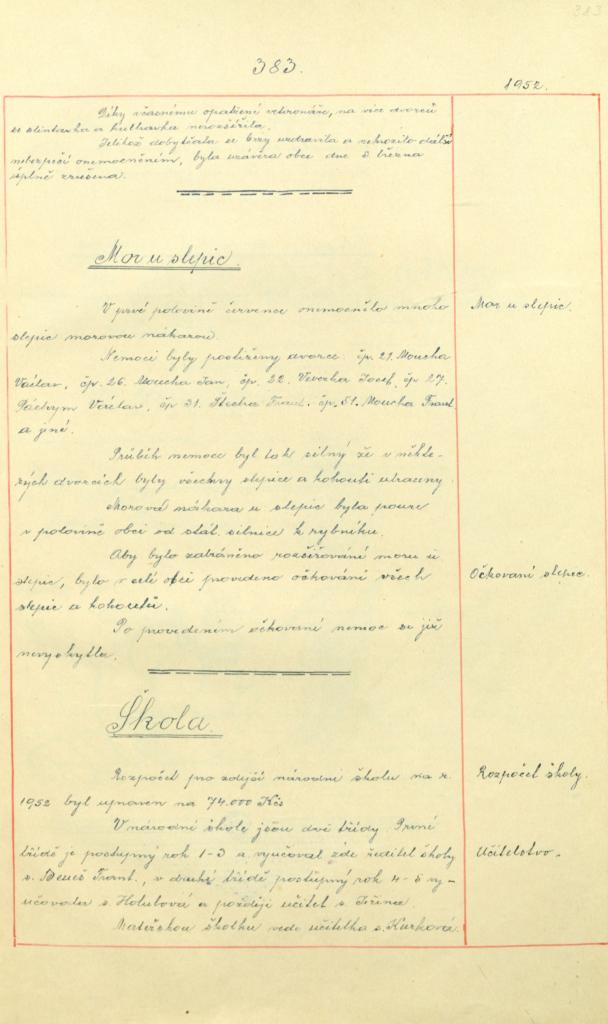 383
383.
1952.
Díky včasnému opatření veterináře, na více dvorců
se slintavka a kulhavka nerozšířila.
Jelikož dobytčata se brzy uzdravila a nehrozilo další
nebezpečí onemocněním, byla uzávěra obce dne 8 března
úplně zrušena.
Mor u slepic.
V prvé polovině července onemocnělo mnoho
Mor u slepic.
slepic morovou nákazou.
Nemocí byly postiženy dvorce: čp. 21. Moucha
Václav, čp. 26. Moucha Jan, čp. 22. Veverka Josef, čp. 27.
Václav, čp 31. Štecha Frant., čp. 51. Moucha Frant.
a jiné.
Průběh nemoce byl tak silný že v někte-
rých dvorcích byly všechny slepice a kohouti utraceny.
Morová nákaza u slepic byla pouze
v polovině obci od stát. silnice k rybníku.
Aby bylo zabráněno rozšiřování moru u
slepic, bylo v celé obci provedeno očkování všech
Očkovaní slepic.
slepic a kohoutů.
Po provedením očkovaní nemoc se již
nevyskytla.
Škola.
Rozpočet pro zdejší národní školu na r.
Rozpočet školy.
1952 byl upraven na 74.000 Kčs
V národní škole jsou dvě třídy. První
třídě je postupný rok 1-3 a vyučoval zde ředitel školy
Učitelstvo.
s. Beneš Frant., v druhé třídě postupný rok 4-5 vy-
učovala s. Holubová a později učitel s. Jiřina.
Mateřskou školku vede učitelka s. Kurková.